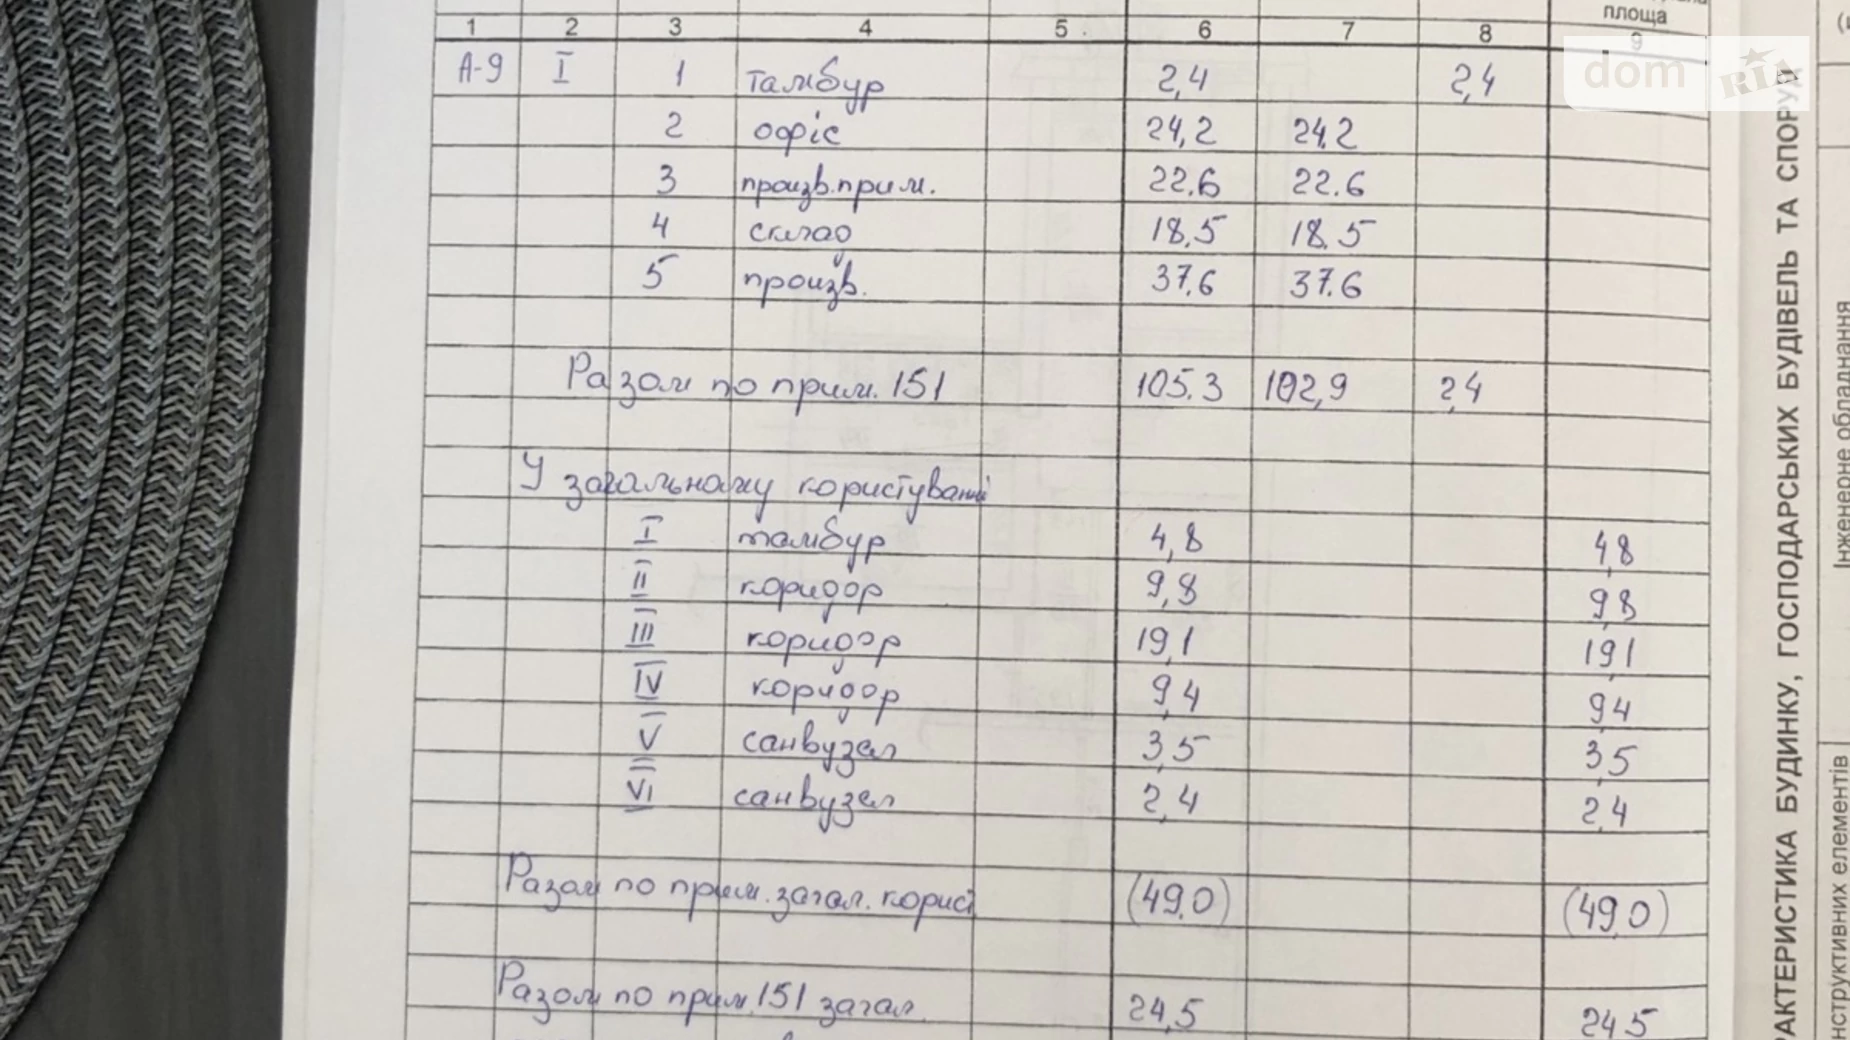 площа
1 2 3 4 5 6 7 8 9
А-9 І 1 тамбур 2,4 2,4
2 офіс 24,2 24,2
3 произв.прим. 22.6 22.6
4 склад 18,5 18.5
5 произв. 37,6 37.6
Разом по прим. 151 105.3 102,9 2,4
У загальному користуванні
І тамбур 4,8 4,8
ІІ коридор 9,8 9,8
ІІІ коридор 19,1 19,1
IV коридор 9,4 9,4
V санвузел 3,5 3,5
VI санвузел 2,4 2,4
Разом по прим. загал. корист (49,0) (49,0)
Разом по прим. 151 загал. 24,5 24,5
dom RIA
РАКТЕРИСТИКА БУДИНКУ, ГОСПОДАРСЬКИХ БУДІВЕЛЬ ТА СПОРУД
Інженерне обладнання
нструктивних елементів